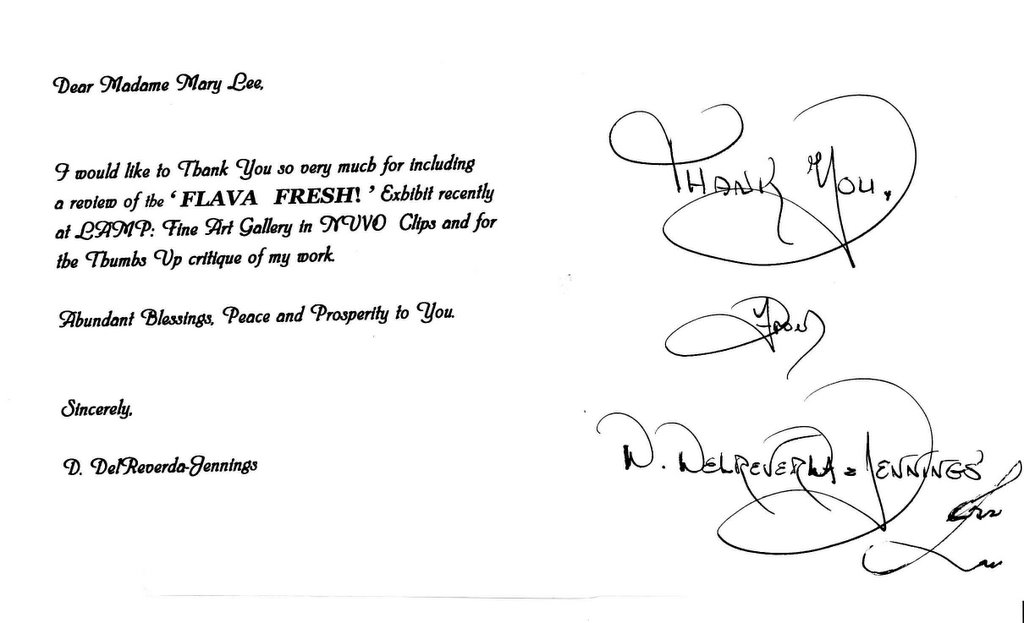 Dear Madame Mary Lee,
I would like to Thank You so very much for including
a review of the ‘ FLAVA FRESH! ’ Exhibit recently
at LAMP: Fine Art Gallery in NUVO Clips and for
the Thumbs Up critique of my work.
Abundant Blessings, Peace and Prosperity to You.
Sincerely,
D. DelReverda-Jennings
THANK YOU,
FROM
D. DELREVERDA-JENNINGS